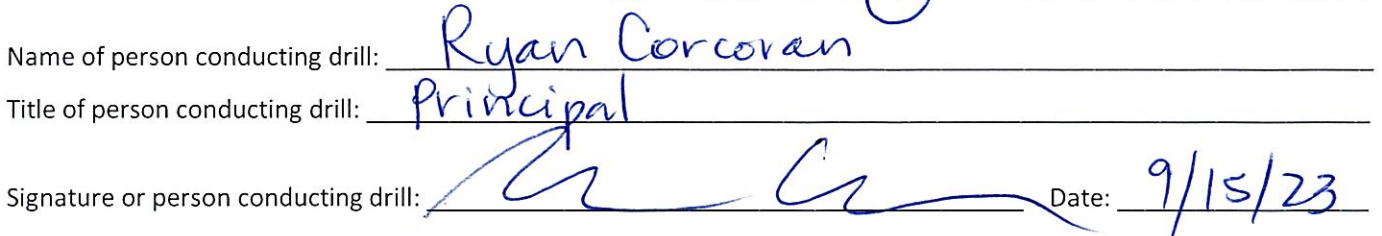 Name of person conducting drill: Ryan Corcoran
Title of person conducting drill: Principal
Signature or person conducting drill: Date: 9/15/23